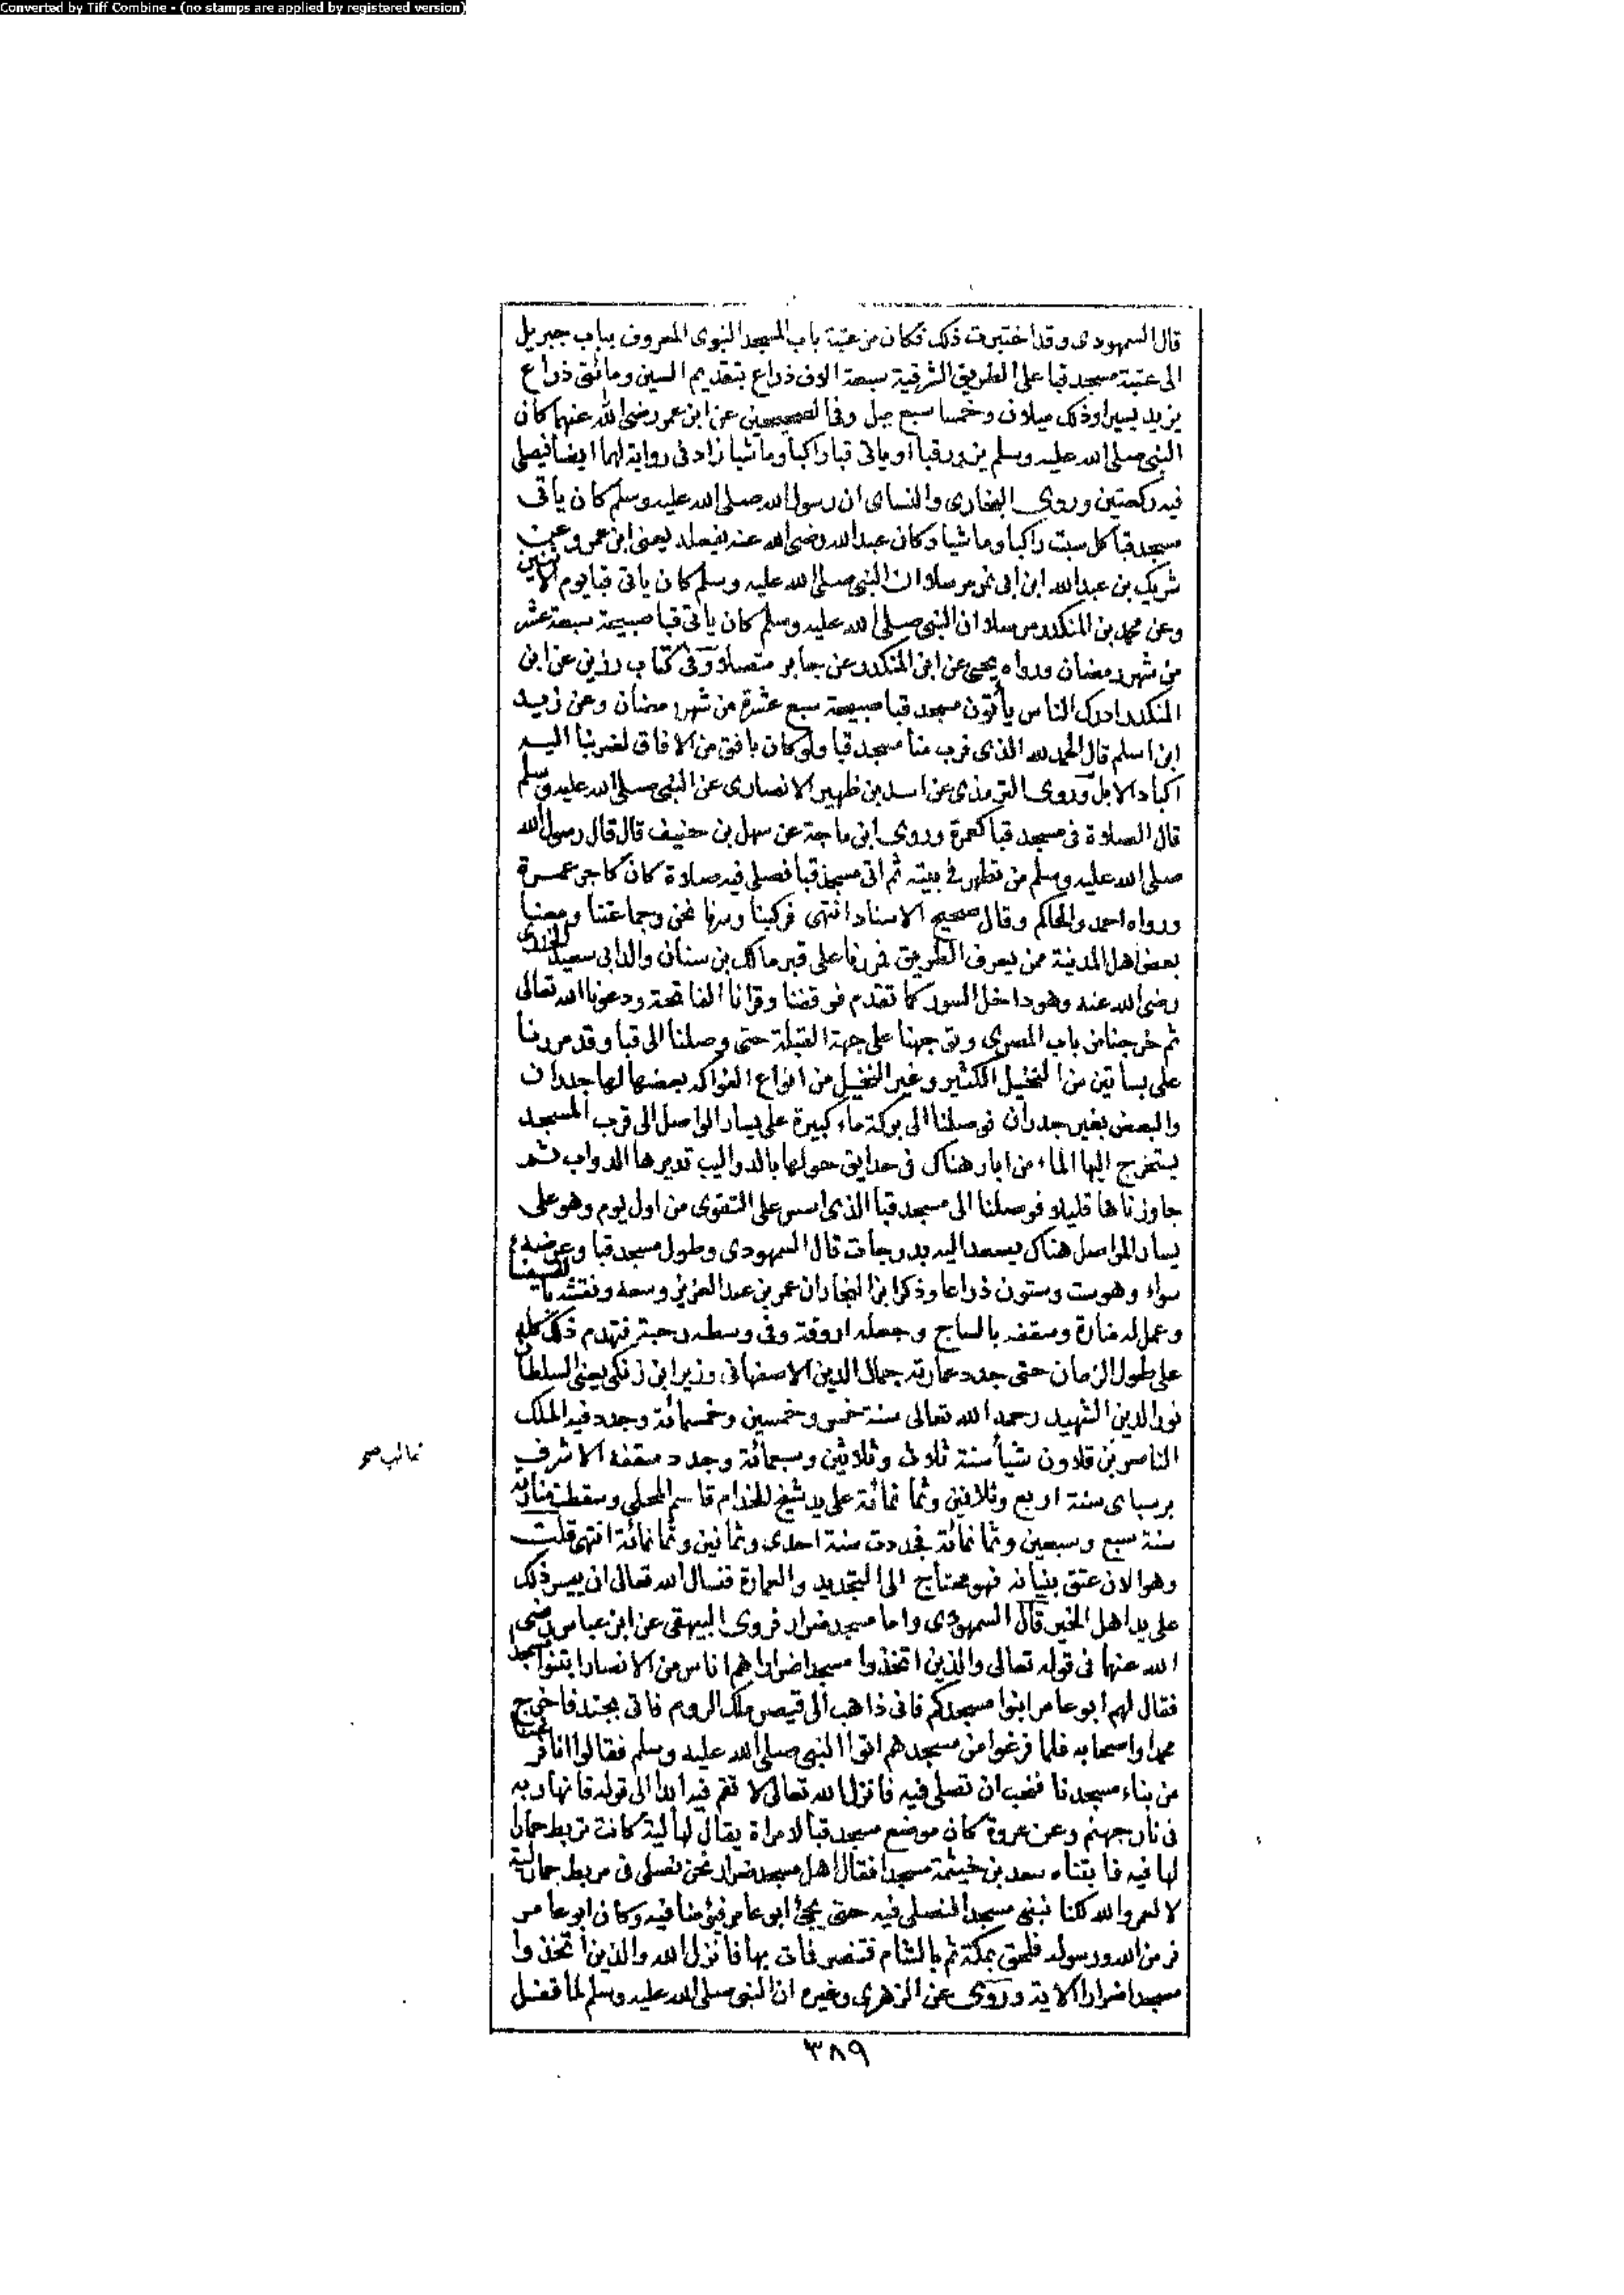 Converted by Tiff Combine - (no stamps are applied by registered version)
قال السمهودى وقد اختبرت ذلك فكان من عتبة باب المسجد النبوى المعروف بباب جبريل
الى عتبة مسجد قبا على الطريق الشرقية سبعة الاف ذراع بتقديم السين ومائتى ذراع
يزيد يسيرا وذلك ميلان وخمسا سبع ميل وفى الصحيحين عن ابن عمر رضى الله عنهما كان
النبى صلى الله عليه وسلم يزور قبا او ياتى قبا راكبا وماشيا زاد فى رواية لهما ايضا فيصلى
فيه ركعتين وروى البخارى والنساى ان رسول الله صلى الله عليه وسلم كان ياتى
مسجد قبا كل سبت راكبا وماشيا وكان عبد الله رضى الله عنه يفعله يعنى ابن عمر وعن
شريك بن عبد الله ابن ابى نمر مرسلا ان النبى صلى الله عليه وسلم كان ياتى قبا يوم الاثنين
وعن محمد بن المنكدر مرسلا ان النبى صلى الله عليه وسلم كان ياتى قبا صبيحة سبعة عشر
من شهر رمضان ورواه يحيى عن ابن المنكدر عن جابر متصلا وفى كتاب رزين عن ابن
المنكدر ادرك الناس يأتون مسجد قبا صبيحة سبع عشرة من شهر رمضان وعن زيد
ابن اسلم قال الحمد لله الذى قرب منا مسجد قبا ولو كان بافق من الافاق لضربنا اليه
اكباد الابل وروى الترمذى عن اسد بن ظهير الانصارى عن النبى صلى الله عليه وسلم
قال الصلاة فى مسجد قبا كعمرة وروى ابن ماجة عن سهل بن حنيف قال قال رسول الله
صلى الله عليه وسلم من تطهر فى بيته ثم اتى مسجد قبا فصلى فيه صلاة كان كاجر عمرة
ورواه احمد والحاكم وقال صحيح الاسناد انتهى فركبنا وسرنا نحن وجماعتنا ومعنا
بعض اهل المدينة ممن يعرف الطريق فمررنا على قبر مالك بن سنان والد ابى سعيد الخدرى
رضى الله عنه وهو داخل السور كما تقدم فوقفنا وقرانا الفاتحة ودعونا الله تعالى
ثم خرجنا من باب المصرى وتوجهنا على جهة القبلة حتى وصلنا الى قبا وقد مررنا
على بساتين من النخيل الكثير وغير النخيل من انواع الفواكه بعضها لها جدران
والبعض بغير جدران فوصلنا الى بركة ماء كبيرة على يسار الواصل الى قرب المسجد
يستخرج اليها الماء من ابار هناك فى حدايق حولها بالدواليب تديرها الدواب ثم
جاوزناها قليلا فوصلنا الى مسجد قبا الذى اسس على التقوى من اول يوم وهو على
يسار الواصل هناك يصعد اليه بدرجات قال السمهودى وطول مسجد قبا وعرضه
سواء وهو ست وستون ذراعا وذكر ابن النجار ان عمر بن عبد العزيز وسعه ونقشه بالفسيفسا
وعمل له منارة وسقفه بالساج وجعله اروقة وفى وسطه رحبة فتهدم ذلك كله
على طول الزمان حتى جدد عمارته جمال الدين الاصفهانى وزير ابن زنكى يعنى السلطان
نور الدين الشهيد رحمه الله تعالى سنة خمس وخمسين وخمسمائة وجدد فيه الملك
الناصر بن قلاون شيأ سنة ثلاث وثلاثين وسبعمائة وجدد سقفه الاشرف
برسباى سنة اربع وثلاثين وثمانمائة على يد شيخ الخدام قاسم المحلى وسقطت منارته
سنة سبع وسبعين وثمانمائة فجددت سنة احدى وثمانين وثمانمائة انتهى قلت
وهو الان عتق بنيانه فهو محتاج الى التجديد والعمارة فنسال الله تعالى ان ييسر ذلك
على يد اهل الخير قال السمهودى واما مسجد ضرار فروى البيهقى عن ابن عباس رضى
الله عنهما فى قوله تعالى والذين اتخذوا مسجدا ضرارا هم اناس من الانصار ابتنوا مسجدا
فقال لهم ابو عامر ابنوا مسجدكم فانى ذاهب الى قيصر ملك الروم فاتى بجند فاخرج
محمدا واصحابه فلما فرغوا من مسجدهم اتوا النبى صلى الله عليه وسلم فقالوا انا فرغنا
من بناء مسجدنا فنحب ان تصلى فيه فانزل الله تعالى لا تقم فيه ابدا الى قوله فانهار به
فى نار جهنم وعن عروة كان موضع مسجد قبا لامراة يقال لها لية كانت تربط حمارا
لها فيه فابتناه سعد بن خيثمة مسجدا فقال اهل مسجد ضرار نحن نصلى فى مربط حمار لية
لا لعمر الله لكنا نبنى مسجدا فنصلى فيه حتى يجئ ابو عامر فيؤمنا فيه وكان ابو عامر
فر من الله ورسوله فلحق بمكة ثم بالشام فتنصر فمات بها فانزل الله والذين اتخذوا
مسجدا ضرارا الاية وروى عن الزهرى وغيره ان النبى صلى الله عليه وسلم لما قفل
٣٨٩